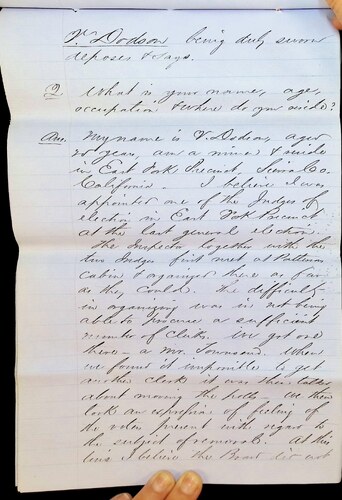 V. Dodson being duly sworn
deposes & says.
Q What is your name, age,
occupation & where do you reside?
Ans. My name is V. Dodson, aged
years, am a miner & reside
in East Fork Precinct, Sierra Co.
California. I believe I was
appointed one of the Judges of
election in East Fork Precinct
at the last general election.
The Inspector together with the
two Judges first met at
cabin & organized there as far
as they could. The difficulty
in organizing was in not being
able to procure a sufficient
number of clerks. We got one
there - a Mr. Townsend. When
we found it impossible to get
another clerk it was then talked
about moving the polls - we then
took an expression of feeling of
the voters present with regard to
the subject of removal. At this
time I believe the Board did not